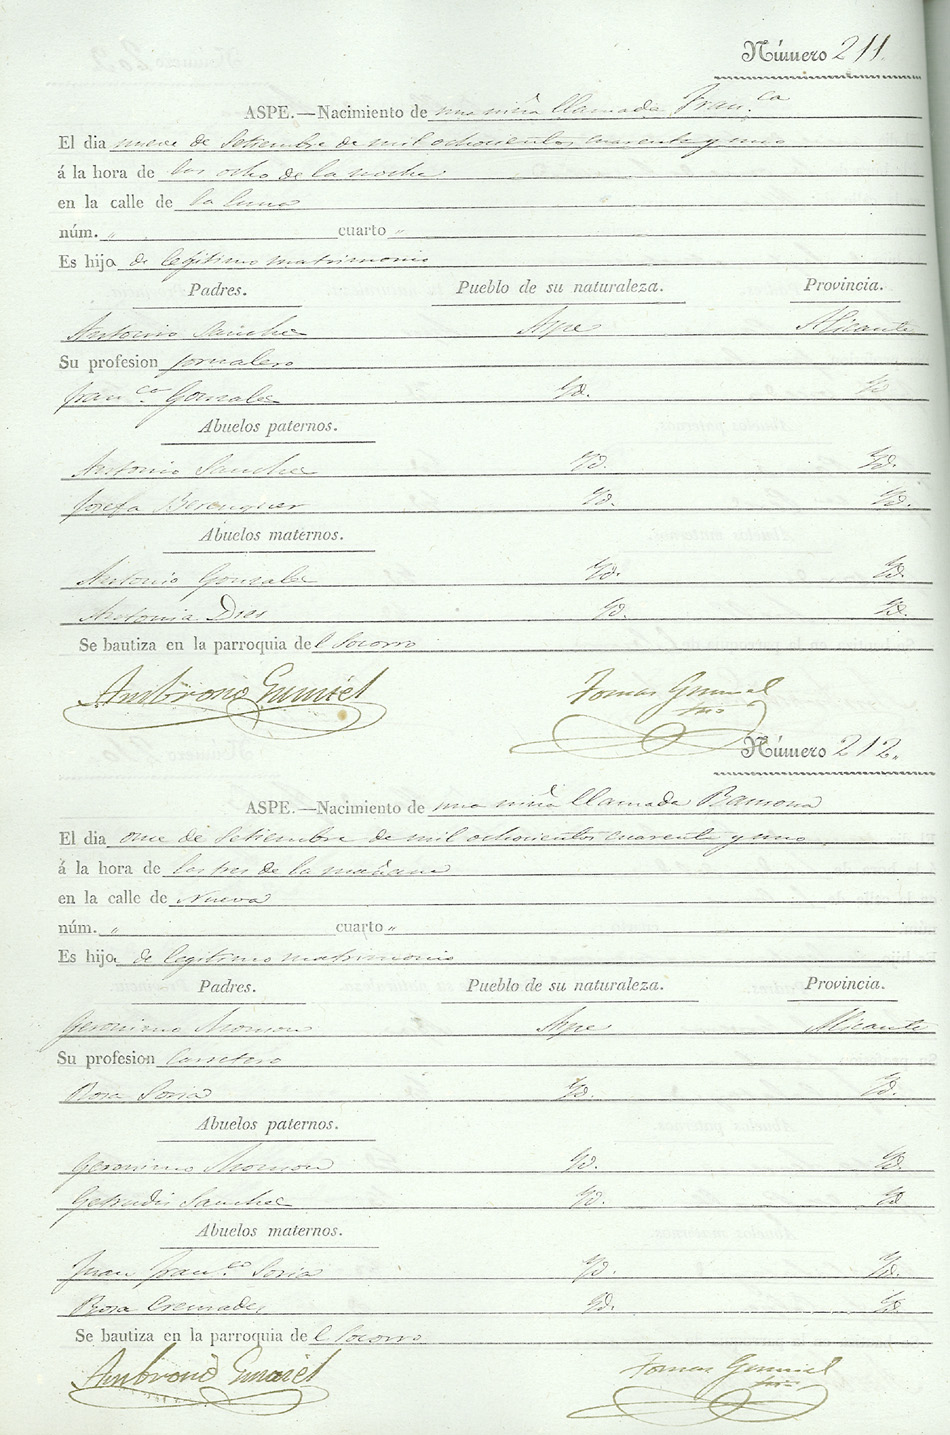 Número 211.
ASPE.—Nacimiento de una niña llamada Fran.ca
El dia nueve de Setiembre de mil ochocientos cuarenta y uno
á la hora de las ocho de la noche
en la calle de la Luna
núm. " cuarto "
Es hija de legítimo matrimonio
Padres. Pueblo de su naturaleza. Provincia.
Antonio Sanchez Aspe Alicante
Su profesion jornalero
Fran.ca Gonzalez Yd. Yd
Abuelos paternos.
Antonio Sanchez Yd. Yd.
Josefa Berenguer Yd. Yd.
Abuelos maternos.
Antonio Gonzalez Yd. Yd.
Antonia Yd. Yd.
Se bautiza en la parroquia del Socorro
Ambrosio Gumiel Tomas Gumiel
Número 212.
ASPE.—Nacimiento de una niña llamada Ramona
El dia once de Setiembre de mil ochocientos cuarenta y uno
á la hora de las tres de la mañana
en la calle de Nueva
núm. " cuarto "
Es hija de legitimo matrimonio
Padres. Pueblo de su naturaleza. Provincia.
Geronimo Aspe Alicante
Su profesion Carretero
Rosa Soria Yd. Yd.
Abuelos paternos.
Geronimo Yd. Yd.
Getrudis Sanchez Yd. Yd
Abuelos maternos.
Juan Fran.co Soria Yd. Yd.
Rosa Cremades Yd. Yd.
Se bautiza en la parroquia del Socorro
Ambrosio Gumiel Tomas Gumiel